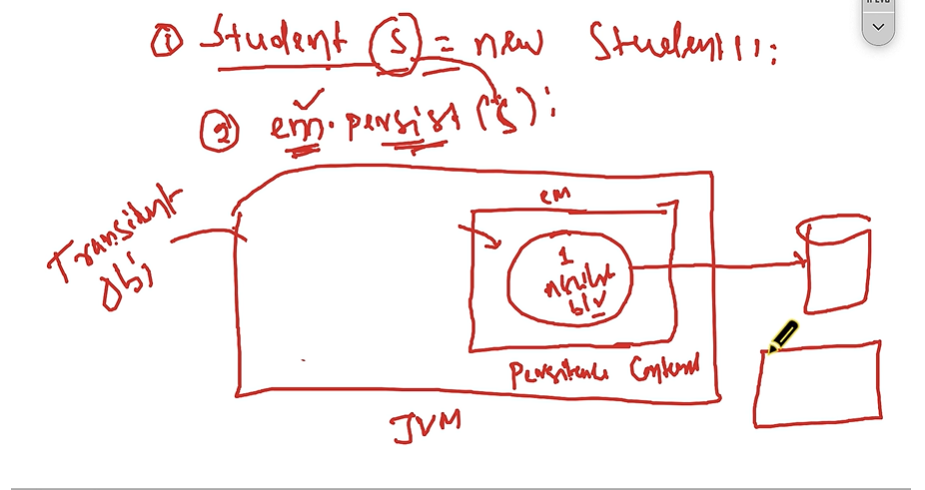 ① Student s = new Student();
② em.persist(s);
Transident
Obj
em
1
blr
Persitence Context
JVM